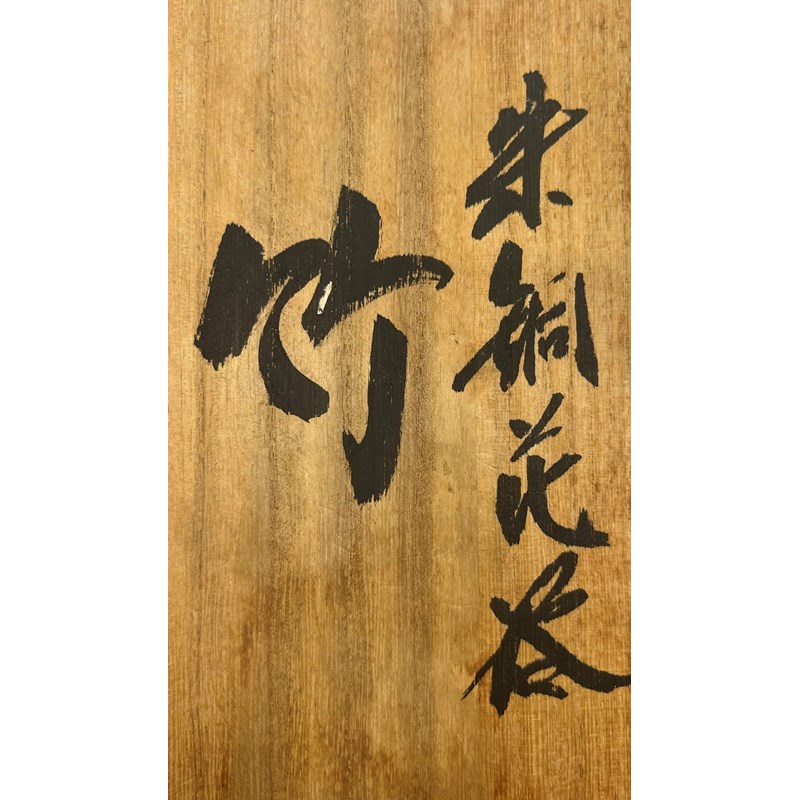 朱銅花器
竹